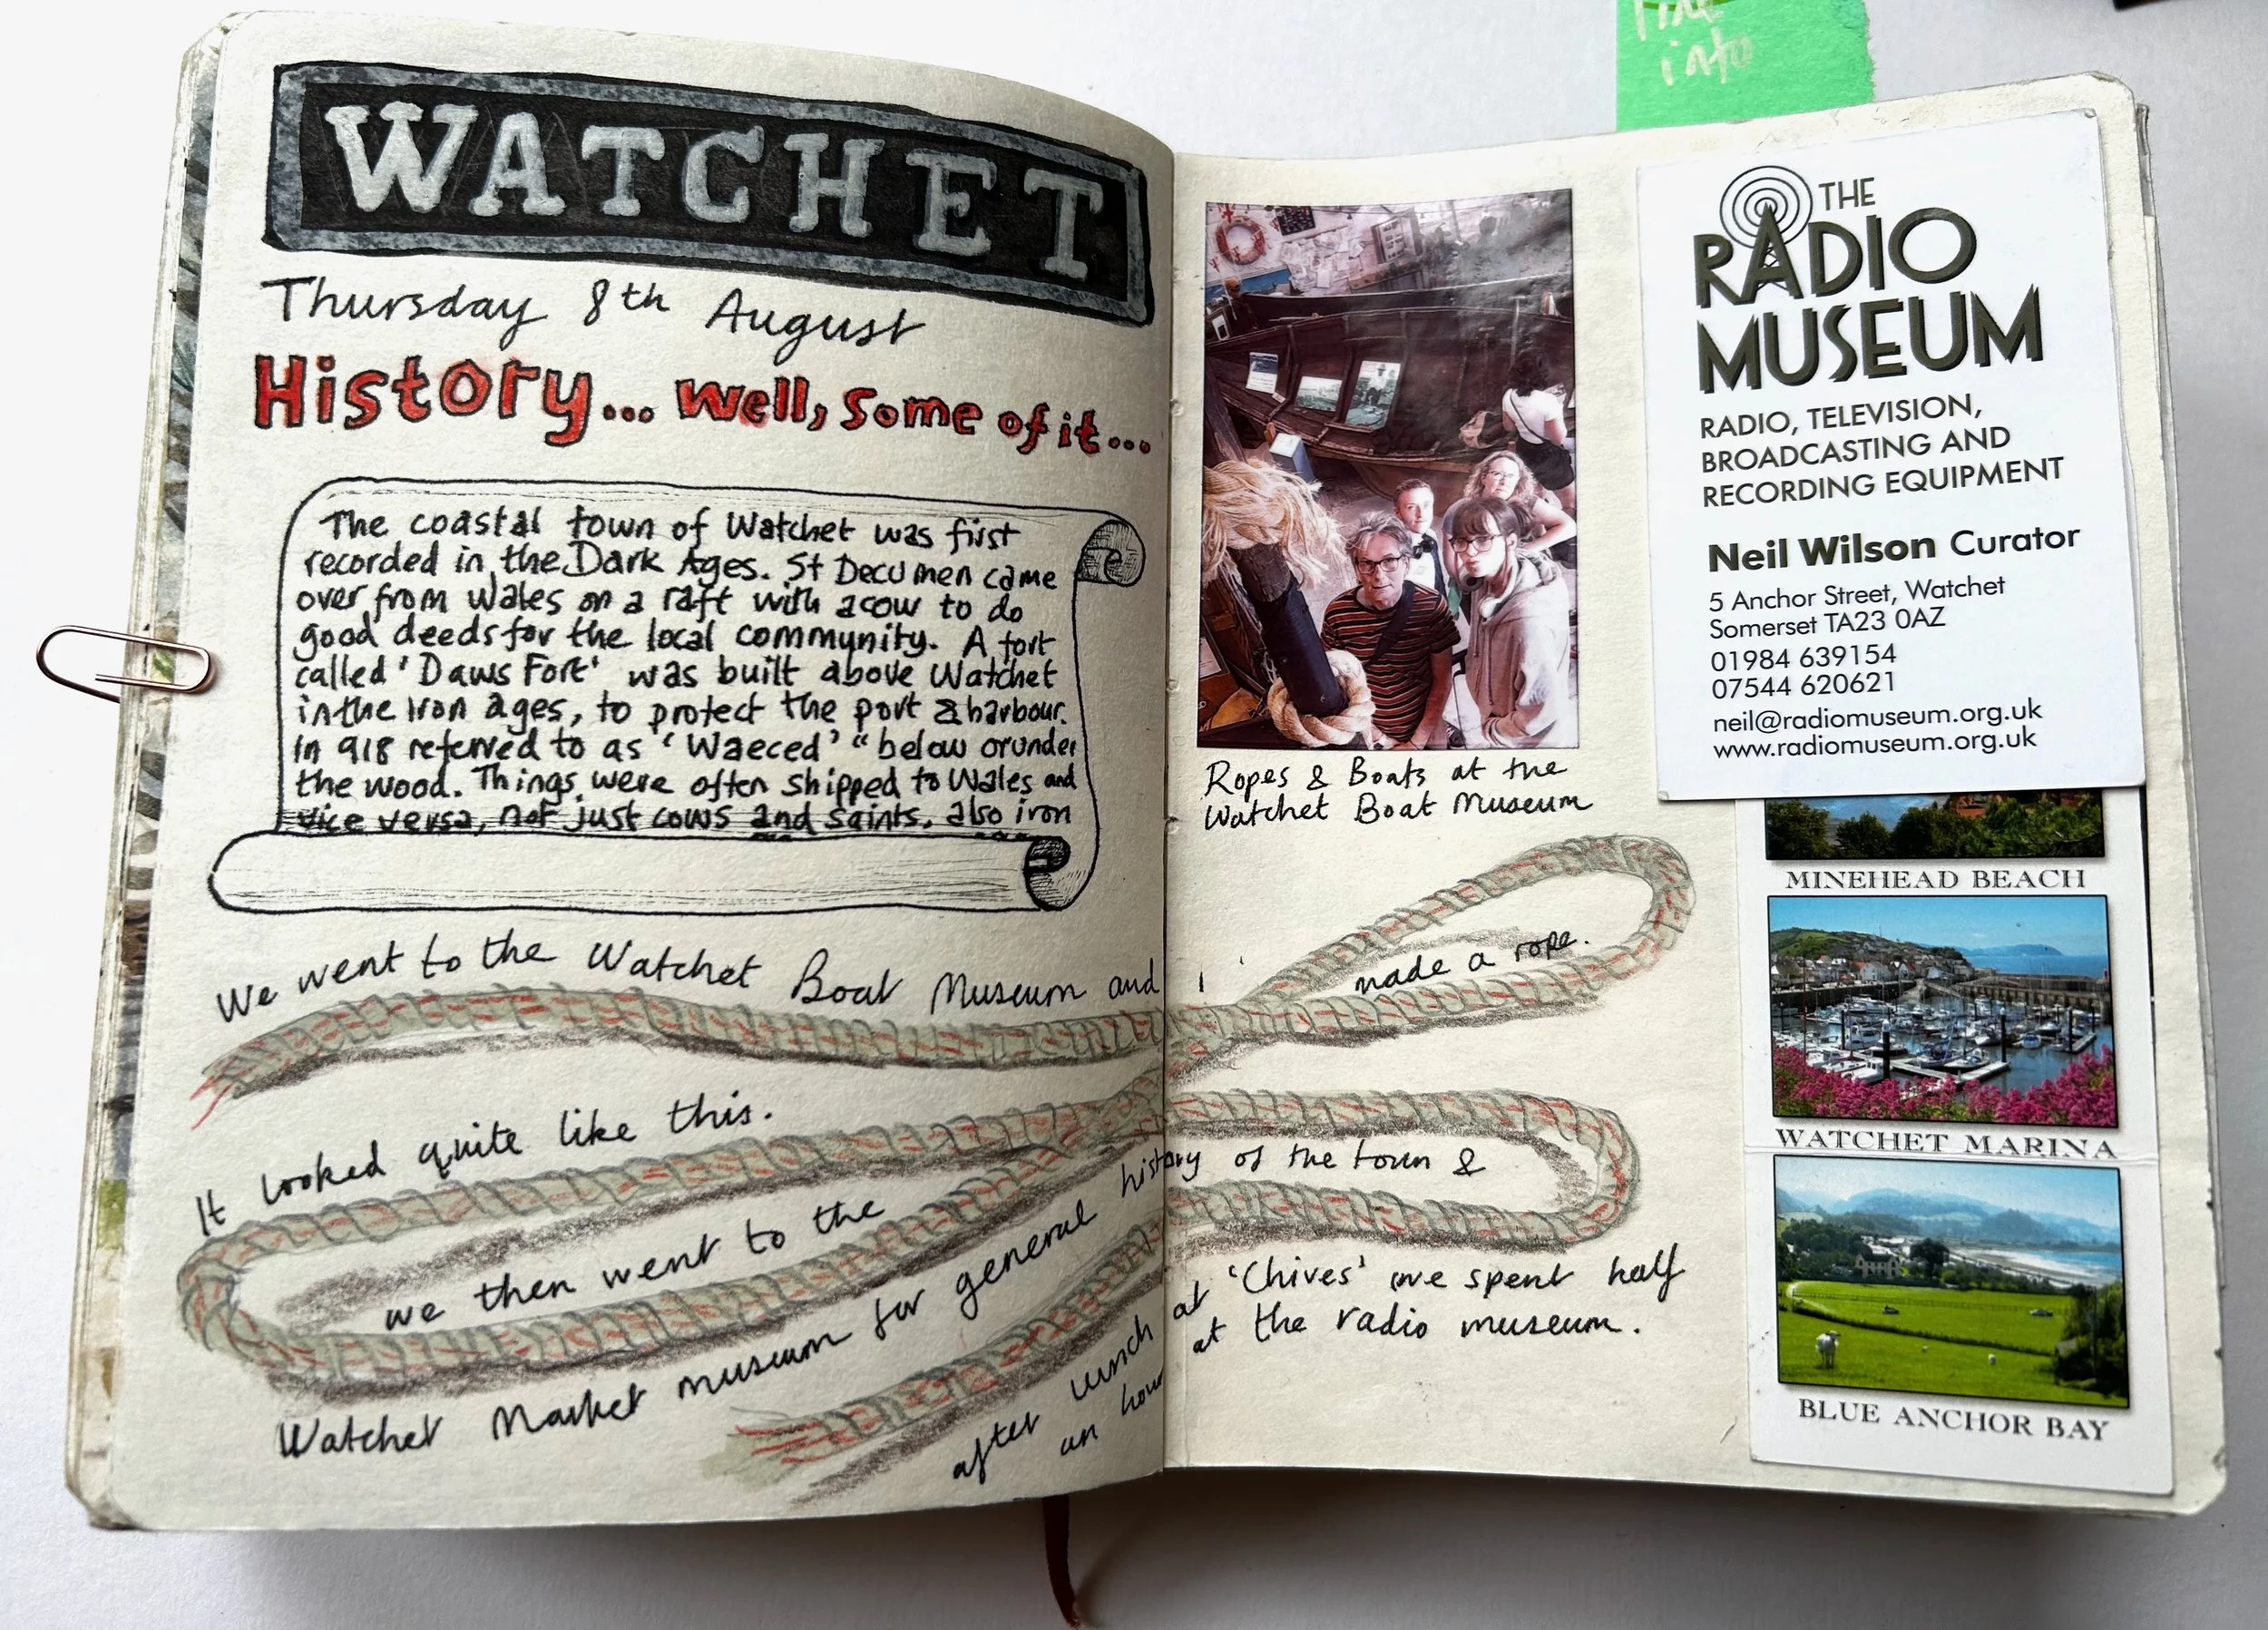 WATCHET
Thursday 8th August
History... well, some of it...
The coastal town of Watchet was first
recorded in the Dark Ages. St Decumen came
over from Wales on a raft with a cow to do
good deeds for the local community. A fort
called 'Daws Fort' was built above Watchet
in the Iron ages, to protect the port & harbour.
In 918 referred to as 'Waeced' "below or under
the wood. Things were often shipped to Wales and
vice versa, not just cows and saints, also iron
We went to the Watchet Boat Museum and I
made a rope.
It looked quite like this.
we then went to the
Watchet Market museum for general history of the town &
after lunch at 'Chives' we spent half
an hour at the radio museum.
into
Ropes & Boats at the
Watchet Boat Museum
THE
RADIO
MUSEUM
RADIO, TELEVISION,
BROADCASTING AND
RECORDING EQUIPMENT
Neil Wilson Curator
5 Anchor Street, Watchet
Somerset TA23 0AZ
01984 639154
07544 620621
neil@radiomuseum.org.uk
www.radiomuseum.org.uk
MINEHEAD BEACH
WATCHET MARINA
BLUE ANCHOR BAY